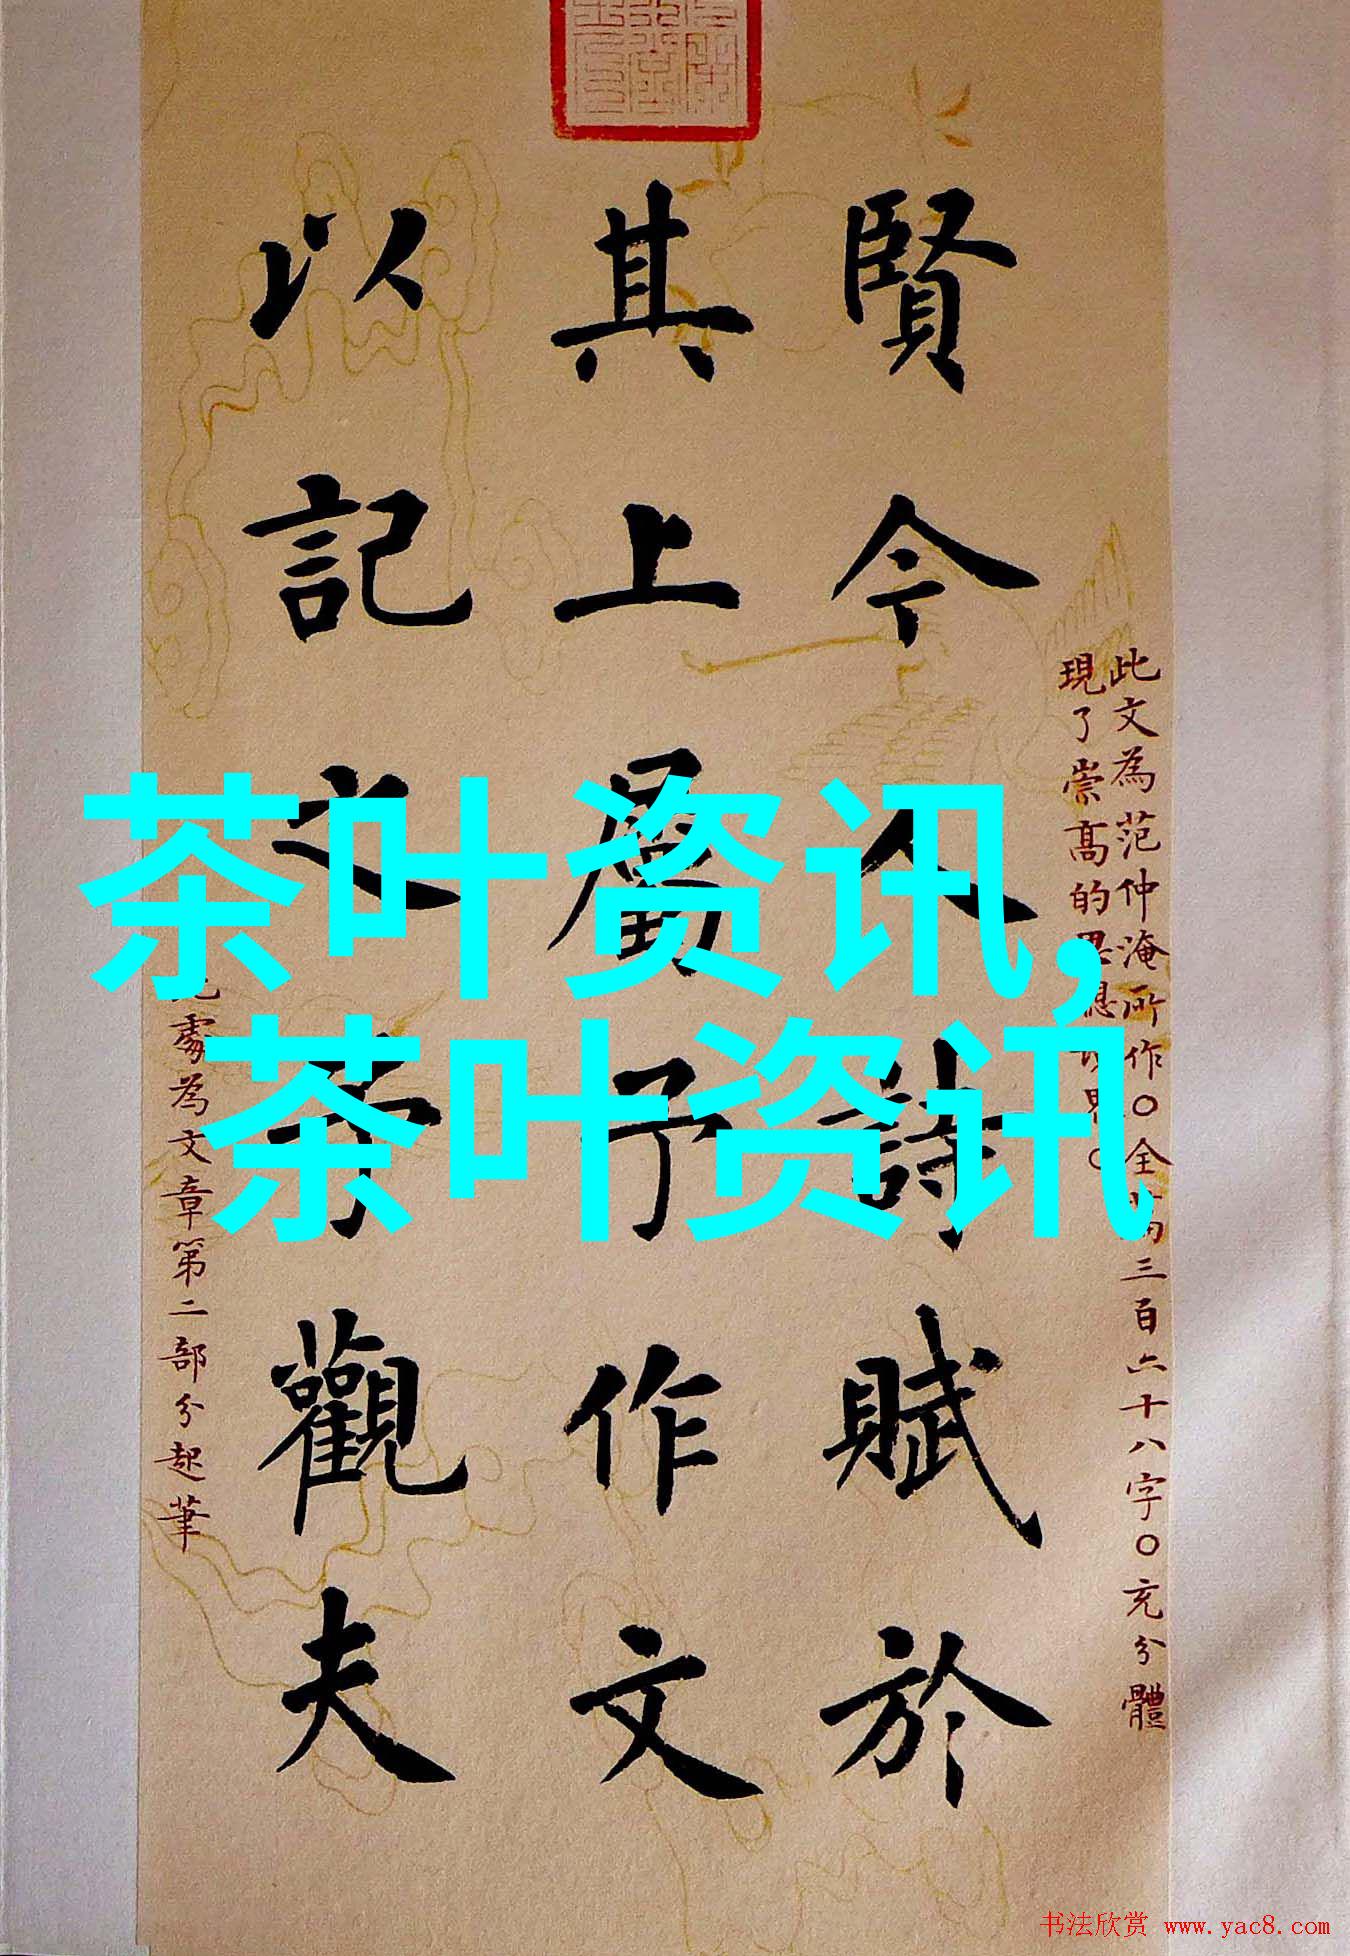 此文為范仲淹所作〇全三百六十八字〇充分體
現了崇高的
賢今人詩賦於
其上屬予作文
以記之予觀夫
處為文章第二部分起筆
茶叶资讯,
茶叶资讯
书法欣赏 www.yac8.com